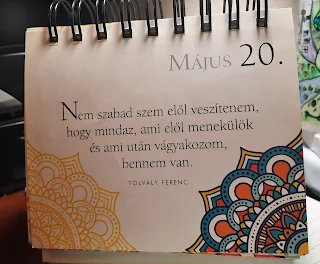 Május 20.
Nem szabad szem elől veszítenem,
hogy mindaz, ami elől menekülök
és ami után vágyakozom,
bennem van.
TOLVALY FERENC